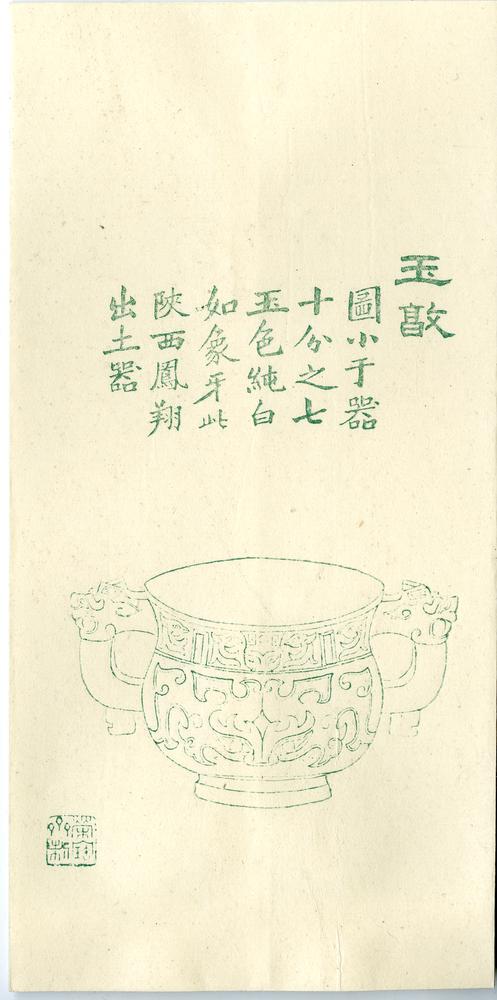 玉敦
圖小于器
十分之七
玉色純白
如象牙此
陝西鳳翔
出土器